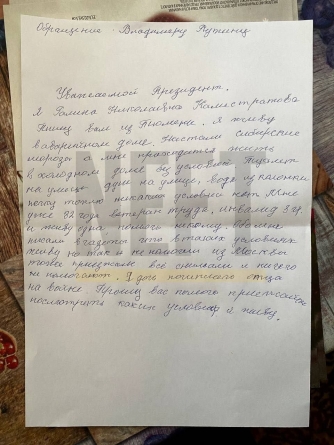 Обращение. Владимиру Путину
Уважаемый Президент.
Я Галина Николаевна Калистратова
Пишу Вам из Тюмени. Я живу
в аварийном доме. Настали сибирские
морозы а мне приходится жить
в холодном доме без условий. Туалет
на улице, на улице. вода из колонки
печку топлю никаких условий нет. Мне
уже 82 года ветеран труда, инвалид 3 гр.
и живу одна помочь некому, обо мне
писали в газетах что в таких условиях
живу но так и не помогли из Москвы
тоже приезжали всё снимали и ничего
не помогают. Я дочь погибшего отца
на войне. Прошу вас помочь приезжайте
посмотрите каких условиях я живу.